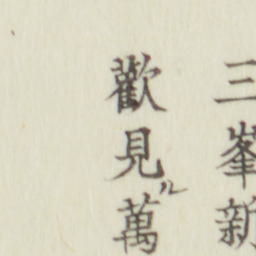 三峯新
歡見ル萬